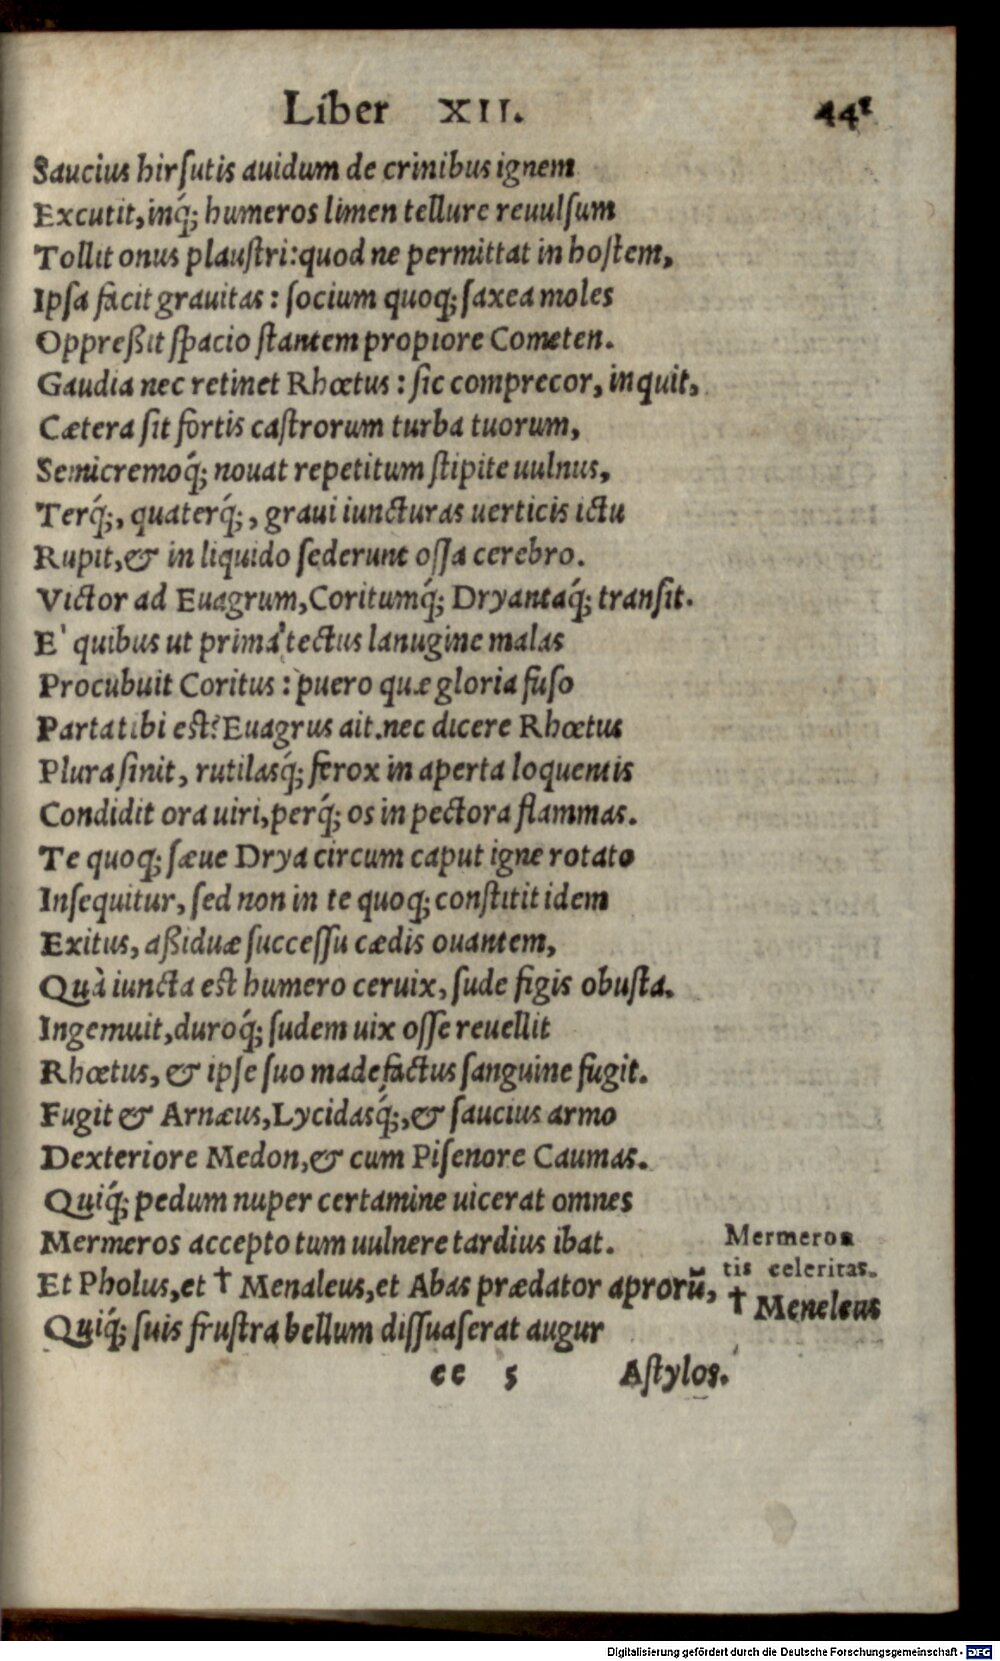 Liber XII. 441
Saucius hirſutis auidum de crinibus ignem
Excutit, inq́; humeros limen tellure reuulſum
Tollit onus plauſtri: quod ne permittat in hoſtem,
Ipſa facit grauitas: ſocium quoq; ſaxea moles
Oppreßit ſpacio ſtantem propiore Cometen.
Gaudia nec retinet Rhœtus: ſic comprecor, inquit,
Cætera ſit fortis caſtrorum turba tuorum,
Semicremoq́; nouat repetitum ſtipite uulnus,
Terq́;, quaterq́;, graui iuncturas uerticis ictu
Rupit, & in liquido ſederunt oſſa cerebro.
Victor ad Euagrum, Coritumq́; Dryantaq́; tranſit.
E' quibus ut prima tectus lanugine malas
Procubuit Coritus: puero quæ gloria fuſo
Parta tibi est? Euagrus ait. nec dicere Rhœtus
Plura ſinit, rutilasq́; ferox in aperta loquentis
Condidit ora uiri, perq́; os in pectora flammas.
Te quoq; ſæue Drya circum caput igne rotato
Inſequitur, ſed non in te quoq; conſtitit idem
Exitus, aßiduæ ſucceſſu cædis ouantem,
Quà iuncta est humero ceruix, ſude figis obuſta.
Ingemuit, duroq́; ſudem uix oſſe reuellit
Rhœtus, & ipſe ſuo madefactus ſanguine fugit.
Fugit & Arnæus, Lycidasq́;, & ſaucius armo
Dexteriore Medon, & cum Piſenore Caumas.
Quiq́; pedum nuper certamine uicerat omnes
Mermeros accepto tum uulnere tardius ibat.
Et Pholus, et † Menaleus, et Abas prædator aprorū,
Quiq́; ſuis fruſtra bellum diſſuaſerat augur
Mermeron
tis celeritas.
† Meneleus
ee 5 Aſtylos.
Digitalisierung gefördert durch die Deutsche Forschungsgemeinschaft - DFG